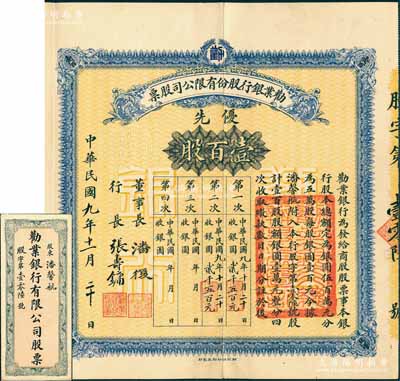 勸業銀行股份有限公司股票
優先
壹百股
勸業銀行為發給商股股票事本銀
行股本總額定為銀圓伍百萬元分
為五萬股每股銀圓壹百元今據
計壹百股股額銀圓壹萬元整分四
次收取繳款數目日期分註於後
第一次 中華民國九年十月二十日 收銀圓
第二次 中華民國九年十月二十日 收銀圓
第三次 中華民國 年 月 日 收銀圓
第四次 中華民國 年 月 日 收銀圓
董事長 潘復
行長 張壽鏞
中華民國九年十一月二十日
股字第
號
股東潘馨航
勸業銀行有限公司股票
股字第壹零陸號